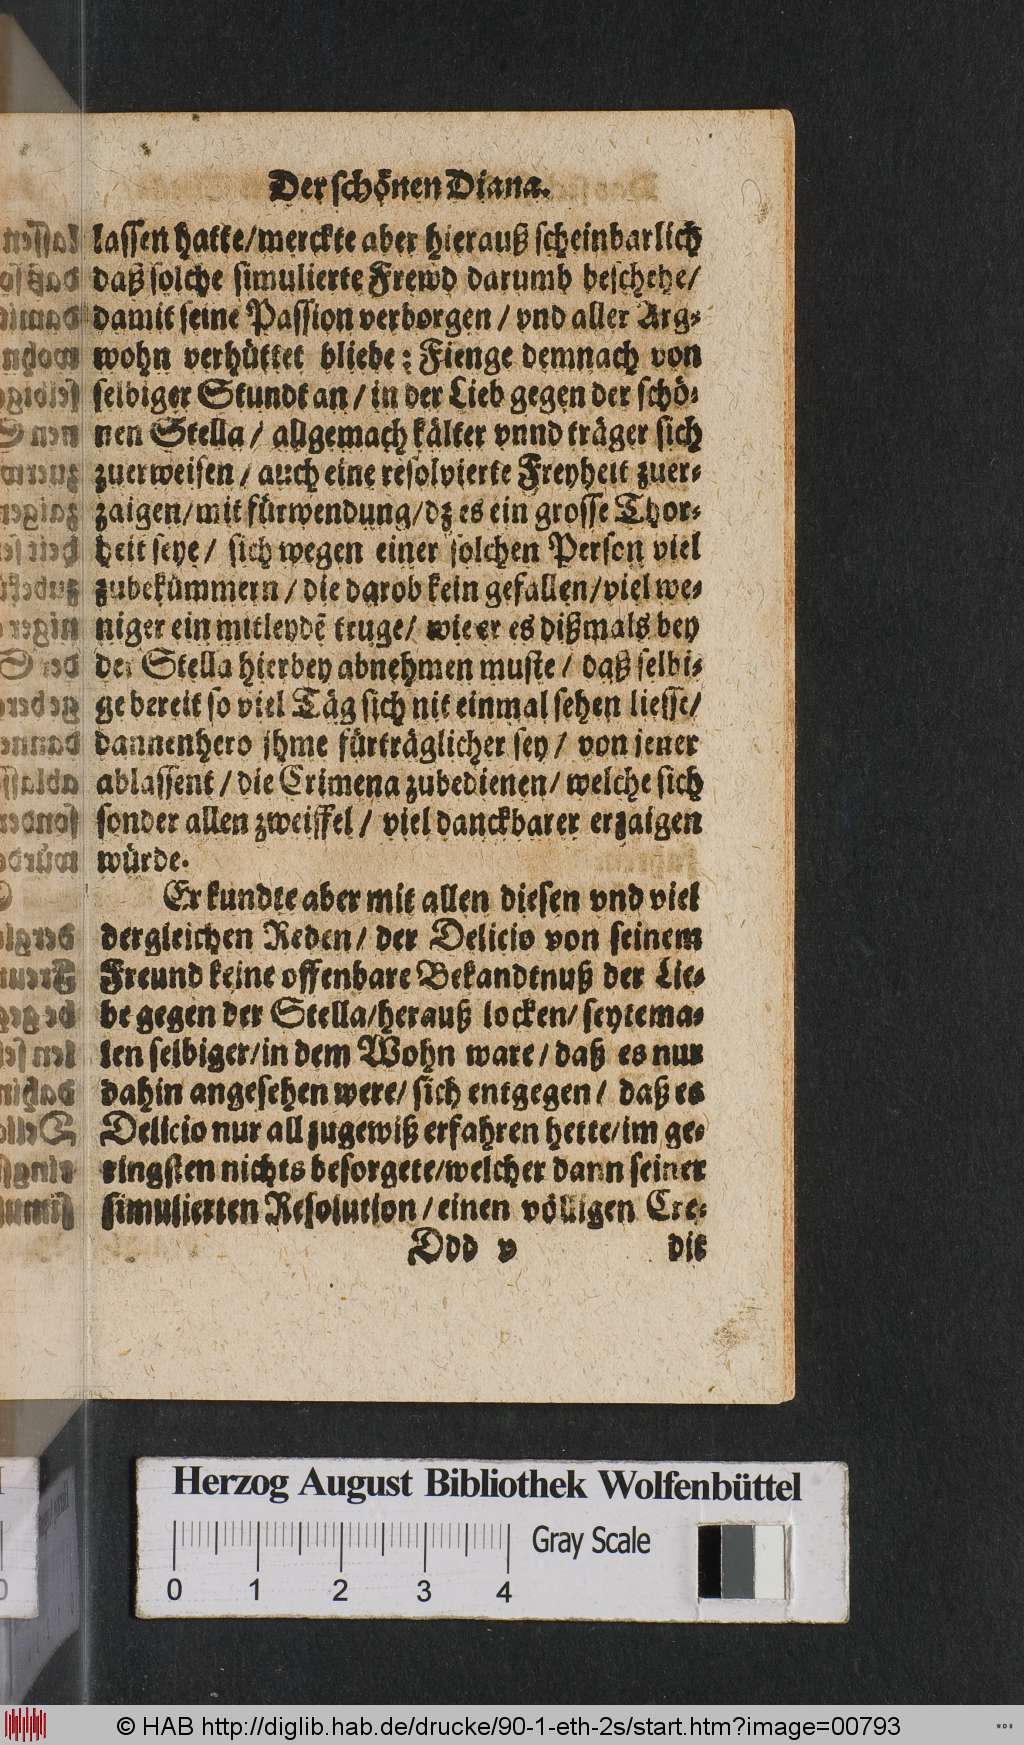 Der schönen Diana.
lassen hatte/merckte aber hierauß scheinbarlich
daß solche simulierte Frewd darumb beschehe/
damit seine Passion verborgen / vnd aller Arg-
wohn verhüttet bliebe: Fienge demnach von
selbiger Stundt an / in der Lieb gegen der schö-
nen Stella / allgemach kälter vnnd träger sich
zuerweisen / auch eine resolvierte Freyheit zuer-
zaigen/mit fürwendung/dz es ein grosse Thor-
heit seye / sich wegen einer solchen Person viel
zubekümmern / die darob kein gefallen/viel we-
niger ein mitleydẽ truge/ wie er es dißmals bey
der Stella hierbey abnehmen muste / daß selbi-
ge bereit so viel Täg sich nit einmal sehen liesse/
dannenhero jhme fürträglicher sey / von jener
ablassent / die Crimena zubedienen/ welche sich
sonder allen zweiffel / viel danckbarer erzaigen
würde.
Er kundte aber mit allen diesen vnd viel
dergleichen Reden/ der Delicio von seinem
Freund keine offenbare Bekandtnuß der Lie-
be gegen der Stella/herauß locken/ seytema-
len selbiger/in dem Wohn ware/ daß es nur
dahin angesehen were/ sich entgegen / daß es
Delicio nur all zugewiß erfahren hette/im ge-
ringsten nichts besorgete/welcher dann seiner
simulierten Resolution / einen völligen Cre-
Ddd v dit
Herzog August Bibliothek Wolfenbüttel
Gray Scale
0 1 2 3 4
© HAB http://diglib.hab.de/drucke/90-1-eth-2s/start.htm?image=00793